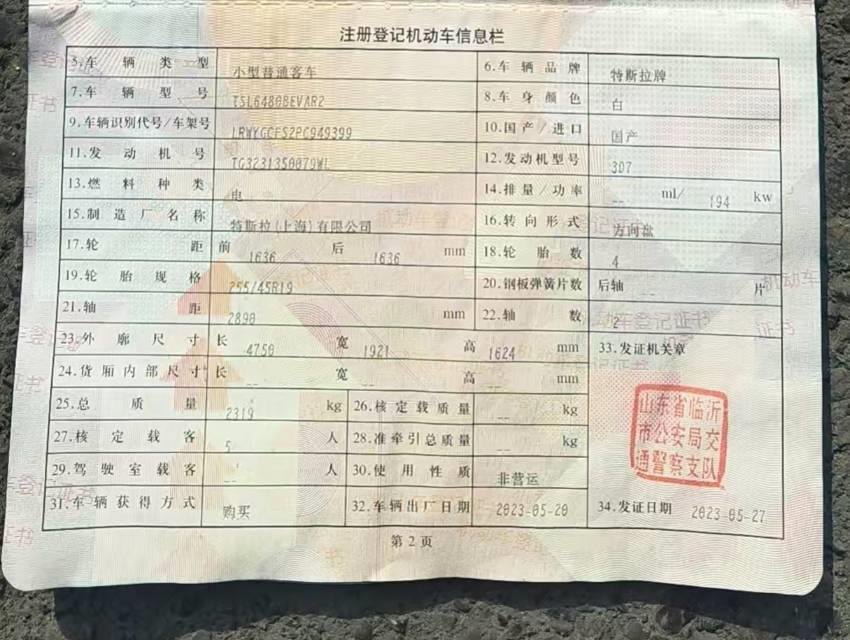 注册登记机动车信息栏
5.车辆类型 小型普通客车 6.车辆品牌 特斯拉牌
7.车辆型号 TSL6480BEVAR2 8.车身颜色 白
9.车辆识别代号/车架号 LRWYGCFS2PC949399 10.国产/进口 国产
11.发动机号 TG3231350079WL 12.发动机型号 3D7
13.燃料种类 电 14.排量/功率 -- ml/ 194 kw
15.制造厂名称 特斯拉(上海)有限公司 16.转向形式 方向盘
17.轮距 前 1636 后 1636 mm 18.轮胎数 4
19.轮胎规格 255/45R19 20.钢板弹簧片数 后轴 -- 片
21.轴距 2890 mm 22.轴数 2
23.外廓尺寸 长 4750 宽 1921 高 1624 mm 33.发证机关章
24.货厢内部尺寸 长 -- 宽 -- 高 -- mm
25.总质量 2319 kg 26.核定载质量 -- kg
山东省临沂
市公安局交
通警察支队
27.核定载客 5 人 28.准牵引总质量 -- kg
29.驾驶室载客 -- 人 30.使用性质 非营运
31.车辆获得方式 购买 32.车辆出厂日期 2023-05-20 34.发证日期 2023-05-27
第2页